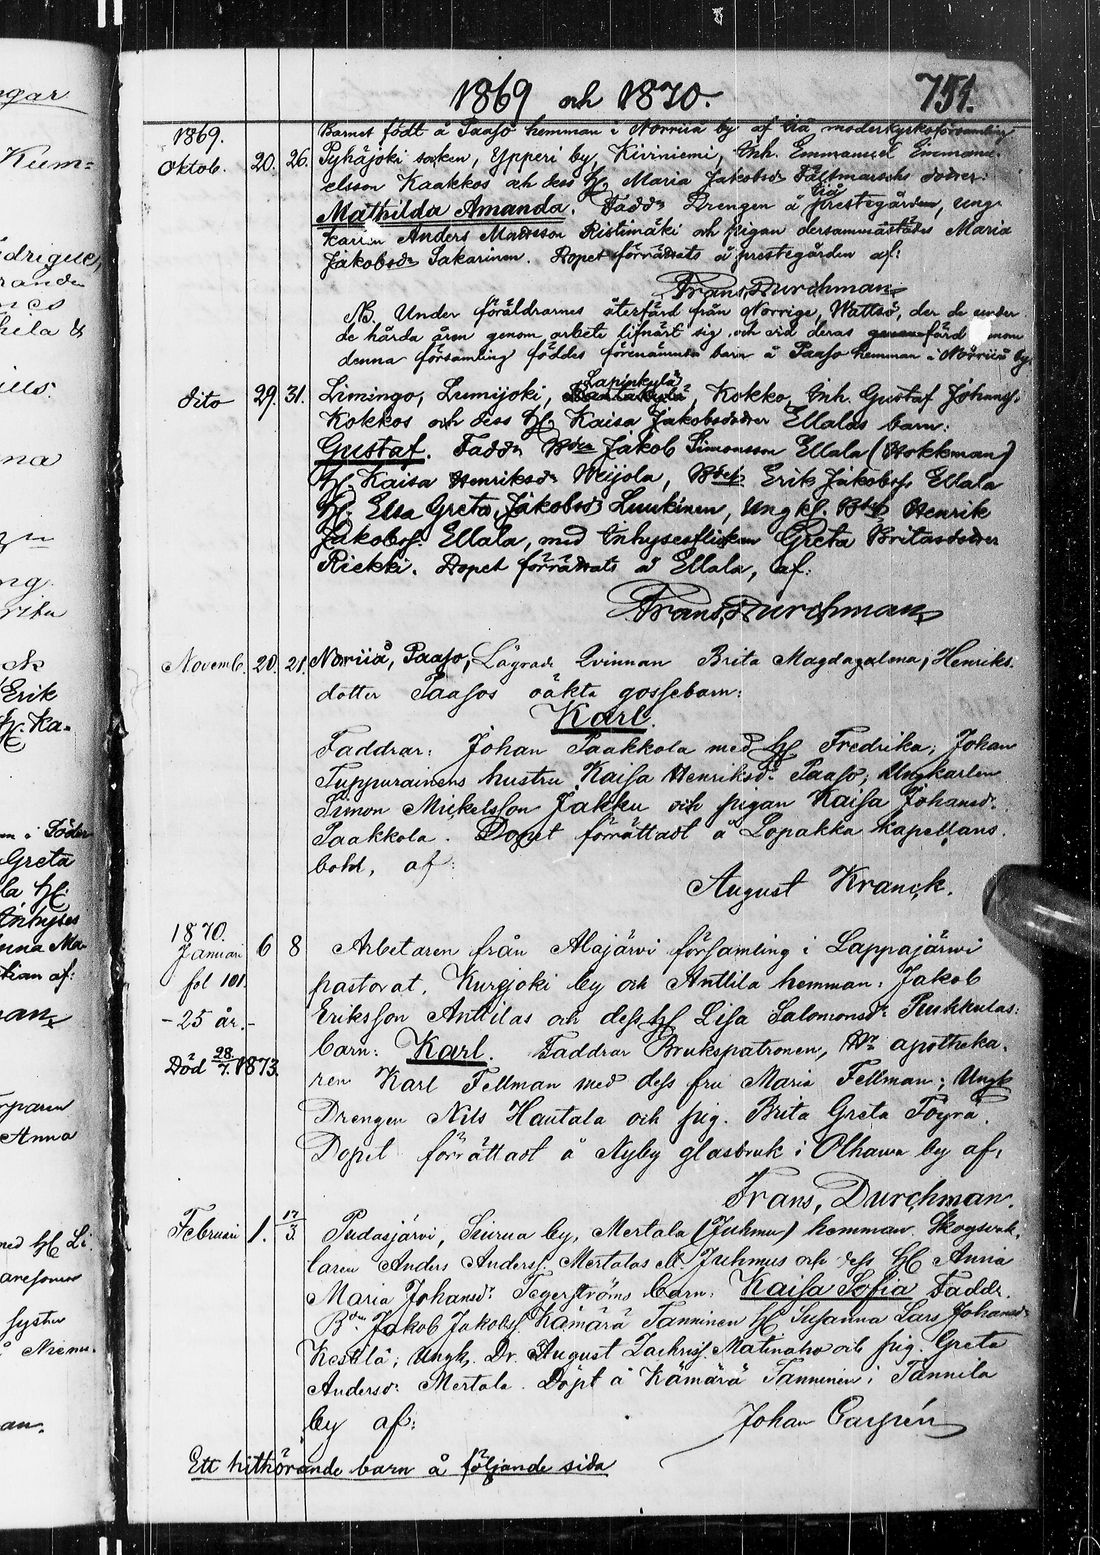 1869 och 1870.
751.
1869.
Barnet födt å Paaso hemman i Norriiå by af Iiå moderkyrkoförsamling
Oktob. 20. 26. Pyhäjoki socken, Ypperi by, Kiviniemi, Inh. Emmanuel Emmanu-
elsson Kaakkos och dess H. Maria Jakobsdr Fältmarschs dotter:
Mathilda Amanda. Faddr Drengen å Iiå prestegården, ung-
karln Anders Mattsson Ristimäki och pigan dersammastädes Maria
Jakobsdr Sakarinen. Dopet förrättats å prestgården af:
Frans, Durchman
NB. Under föräldrarnes återfärd från Norrige, Wattsö, der de under
de hårda åren genom arbete lifnärt sig, och vid deras färd genom
denna församling föddes förenämnda barn å Paaso hemman i Norriiå by.
dito 29. 31. Limingo, Lumijoki, Lapinkylä, Kokko, Inh. Gustaf Johanss.
Kokkos och dess H. Kaisa Jakobsdotter Ellalas barn:
Gustaf. Faddr Bden Jakob Simonsson Ellala (Hokkman)
H. Kaisa Henriksdr Weijola, Bdes. Erik Jakobss Ellala
H. Elsa Greta Jakobsdr Luukinen, Ungkl. Bds Henrik
Jakobss. Ellala, med Inhysesflickan Greta Britasdotter
Riekki. Dopet förrättats å Ellala, af:
Frans, Durchman
Novemb. 20. 21. Norriiå, Paaso, Lägrade Qvinnan Brita Magdagalena, Henriks
dotter Paasos oäkta gossebarn:
Karl.
Faddrar: Johan Paakkola med H Fredrika; Johan
Tuppurainens hustru Kaisa Henriksdr Paaso; Ungkarlen
Simon Mickelsson Jakku och pigan Kaisa Johansd.
Paakkola. Dopet förrättadt å Lopakka kapellans
bohl, af:
August Kranck.
1870.
Januari 6 8 Arbetaren från Alajärvi församling i Lappajärvi
fol 101. pastorat, Kurejoki by och Anttila hemman: Jakob
- 25 år. - Eriksson Anttilas och dess H Lisa Salomonsdr Pukkulas:
Död 28/7. 1873. barn: Karl. Faddrar Brukspatronen, Hr apotheka-
ren Karl Fellman med dess fru Maria Fellman; Ungk
Drengen Nils Hautala och pig. Brita Greta Töyrä.
Dopet förrättadt å Nyby glasbruk i Olhava by af:
Frans, Durchman.
Februari 1. 17/3 Pudasjärvi, Siurua by, Mertala (Juhmu) hemman. Skogsvak-
taren Anders Anderss. Mertalas el. Juhmus och dess H Anna
Maria Johansdr Tegerströms barn: Kaisa Sofia Faddr.
Bdn Jakob Jakobss. Kämärä Tanninen H Susanna Lars Johansdr
Kestilä; Ungk. Dr. August Zachriss. Matinaho och pig. Greta
Andersdr Mertala. Döpt å Kämärä Tanninen i Tannila
by af:
Johan Carpén
Ett hithörande barn å följande sida